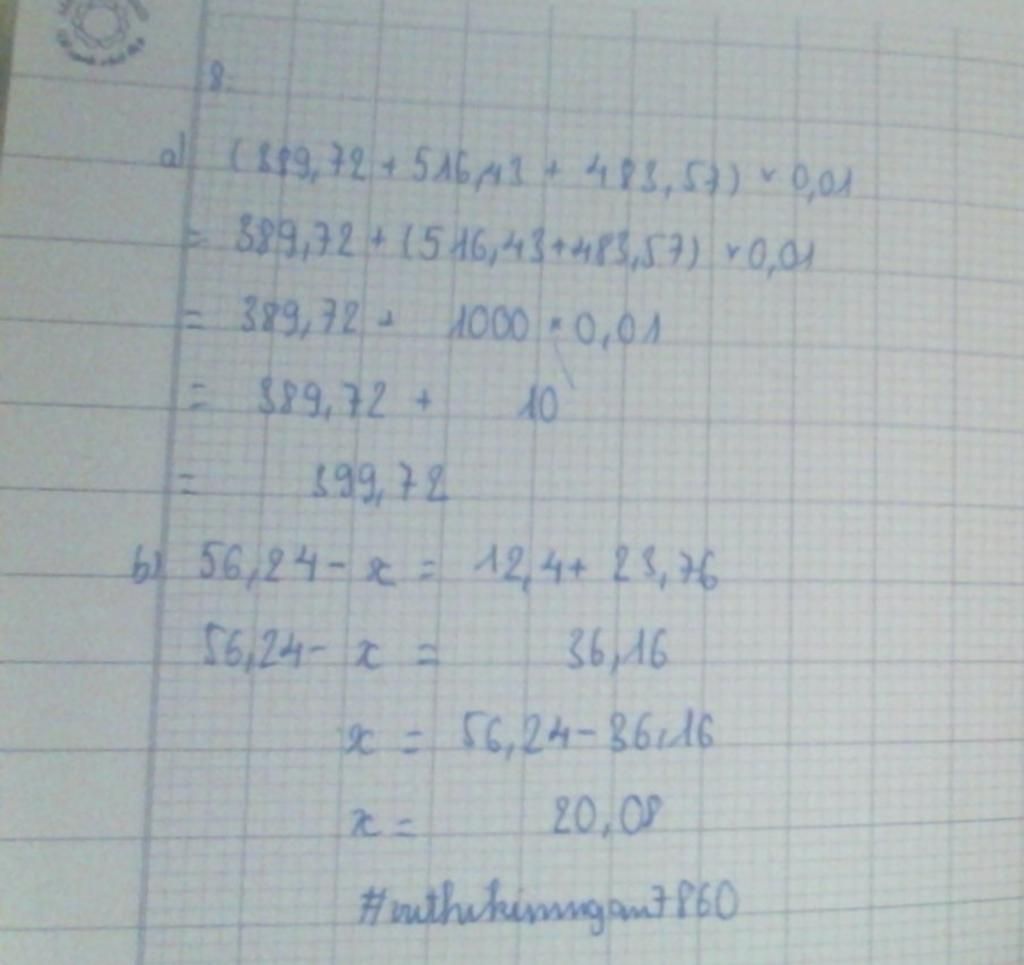 8.
a) (389,72 + 516,43 + 483,57) × 0,01
= 389,72 + (516,43+483,57) × 0,01
= 389,72 + 1000 × 0,01
= 389,72 + 10
= 399,72
b) 56,24 - x = 12,4+ 23,76
56,24 - x = 36,16
x = 56,24 - 36,16
x = 20,08